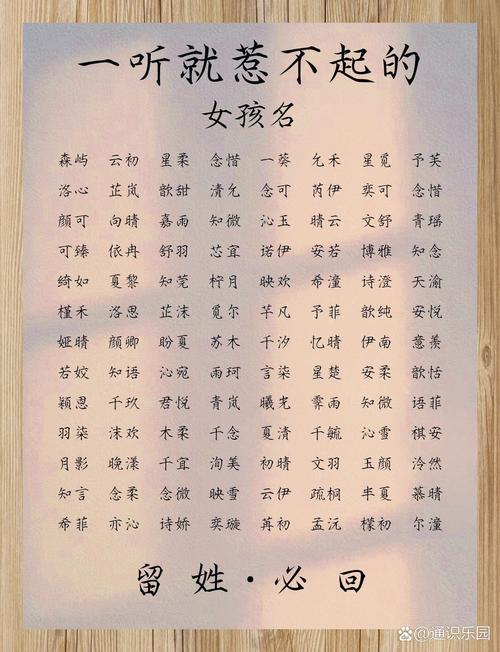 一听就惹不起的
女孩名
森屿 云初 星柔 念惜 一葵 允禾 星觅 予芙
洛心 芷岚 歆甜 清允 念可 芮伊 奕可 念惜
颜可 向晴 嘉雨 知微 沁玉 晴云 文舒 青瑶
可臻 依冉 舒羽 芯宜 诺伊 安若 博雅 知念
绮如 夏黎 知莞 柠月 映欢 希潼 诗澄 天渝
槿禾 洛思 芷沫 觅尔 芊凡 予菲 歆纯 安悦
娅晴 颜卿 盼夏 苏木 千汐 忆晴 伊南 意羡
若姣 知语 沁宛 雨珂 言柒 星楚 安柔 歆恬
颖恩 千玖 君悦 青岚 曦光 霁雨 知微 语菲
羽柒 沫欢 木柔 千念 夏清 千毓 沁雪 祺安
月影 晚漾 千宜 洵美 初晴 文羽 玉颜 泠然
知言 念柔 念微 映雪 云伊 疏桐 半夏 慕晴
希菲 亦沁 诗娇 奕璇 苒初 孟沅 檬初 尔潼
留姓·必回
通识乐园